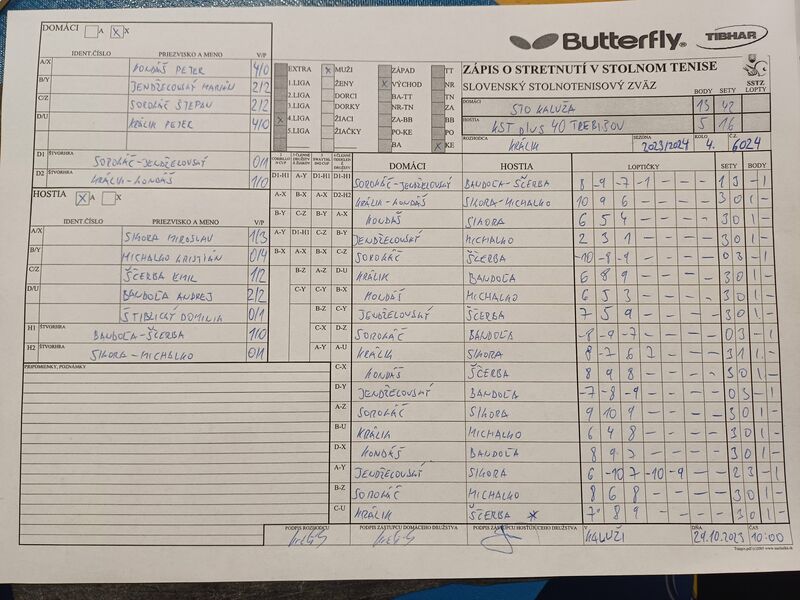 DOMÁCI A X X
Butterfly® TIBHAR
IDENT.ČÍSLO PRIEZVISKO A MENO V/P
A/X KONDÁŠ PETER 4/0
B/Y JENDŽELOVSKÝ MARIÁN 2/2
C/Z SOROKÁČ ŠTEPAN 2/2
D/U KRÁLIK PETER 4/0
D1 ŠTVORHRA SOROKÁČ-JENDŽELOVSKÝ 0/1
D2 ŠTVORHRA KRÁLIK-KONDÁŠ 1/0
HOSTIA X A X
IDENT.ČÍSLO PRIEZVISKO A MENO V/P
A/X SIKORA MIROSLAV 1/3
B/Y MICHALKO KRISTIÁN 0/4
C/Z ŠČERBA EMIL 1/2
D/U BANDOĽA ANDREJ 2/2
ŠTIBLICKÝ DOMINIK 0/1
H1 ŠTVORHRA BANDOĽA-ŠČERBA 1/0
H2 ŠTVORHRA SIKORA-MICHALKO 0/1
PRIPOMIENKY, POZNÁMKY
EXTRA X MUŽI ZÁPAD TT
1.LIGA ŽENY X VÝCHOD NR
2.LIGA DORCI BA-TT TN
3.LIGA DORKY NR-TN ZA
X 4.LIGA ŽIACI ZA-BB BB
5.LIGA ŽIAČKY PO-KE PO
BA X KE
ZÁPIS O STRETNUTÍ V STOLNOM TENISE
SLOVENSKÝ STOLNOTENISOVÝ ZVÄZ
SSTZ
BODY SETY LOPTY
DOMÁCI STO KALUŽA 13 42
HOSTIA KST plus 40 TREBIŠOV 5 16
ROZHODCA KRÁLIK SEZÓNA 2023/2024 KOLO 4. Č.Z. 6024
DOMÁCI HOSTIA LOPTIČKY SETY BODY
D1-H1 A-Y D1-H1 D1-H1 SOROKÁČ-JENDŽELOVSKÝ BANDOĽA-ŠČERBA 8 -9 -7 -1 - - - 1 3 - 1
A-X B-X A-X D2-H2 KRÁLIK-KONDÁŠ SIKORA-MICHALKO 10 9 6 - - - - 3 0 1 -
B-Y C-Z B-Y A-X KONDÁŠ SIKORA 6 5 4 - - - - 3 0 1 -
A-Y D1-H1 C-Z B-Y JENDŽELOVSKÝ MICHALKO 2 3 1 - - - - 3 0 1 -
B-X A-X B-X C-Z SOROKÁČ ŠČERBA -10 -8 -9 - - - - 0 3 - 1
B-Z A-Z D-U KRÁLIK BANDOĽA 6 8 9 - - - - 3 0 1 -
C-Y C-Y B-X KONDÁŠ MICHALKO 6 5 3 - - - - 3 0 1 -
B-Z C-Y JENDŽELOVSKÝ ŠČERBA 7 5 9 - - - - 3 0 1 -
C-X D-Z SOROKÁČ BANDOĽA -8 -9 -7 - - - - 0 3 - 1
A-Y A-U KRÁLIK SIKORA 8 -7 6 2 - - - 3 1 1 -
C-X KONDÁŠ ŠČERBA 8 9 8 - - - - 3 0 1 -
D-Y JENDŽELOVSKÝ BANDOĽA -7 -8 -9 - - - - 0 3 - 1
A-Z SOROKÁČ SIKORA 9 10 9 - - - - 3 0 1 -
B-U KRÁLIK MICHALKO 6 4 8 - - - - 3 0 1 -
D-X KONDÁŠ BANDOĽA 8 9 - - - - 3 0 1 -
A-Y JENDŽELOVSKÝ SIKORA 6 -10 7 -10 -9 - - 2 3 - 1
B-Z SOROKÁČ MICHALKO 8 6 8 - - - - 3 0 1 -
C-U KRÁLIK ŠČERBA * 7 8 9 - - - - 3 0 1 -
PODPIS ROZHODCU PODPIS ZÁSTUPCU DOMÁCEHO DRUŽSTVA PODPIS ZÁSTUPCU HOSŤUJÚCEHO DRUŽSTVA V KALUŽI DŇA 29.10.2023 ČAS 10:00